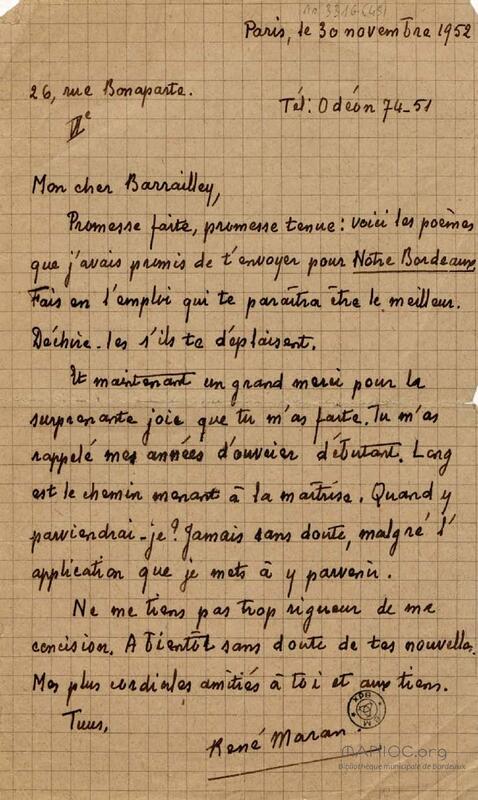 Ms. 3316 (48)
Paris, le 30 novembre 1952
26, rue Bonaparte.
VIe
Tél: Odéon 74-51
Mon cher Barrailley,
Promesse faite, promesse tenue: voici les poèmes
que j'avais promis de t'envoyer pour Notre Bordeaux
Fais en l'emploi qui te paraîtra être le meilleur.
Déchire-les s'ils te déplaisent.
Et maintenant un grand merci pour la
surprenante joie que tu m'as faite. Tu m'as
rappelé mes années d'ouvrier débutant. Long
est le chemin menant à la maîtrise. Quand y
parviendrai-je? Jamais sans doute, malgré l'
application que je mets à y parvenir.
Ne me tiens pas trop rigueur de ma
concision. A bientôt sans doute de tes nouvelles.
Mes plus cordiales amitiés à toi et aux tiens.
Tuus,
René Maran
MANIOC.org
Bibliothèque municipale de Bordeaux